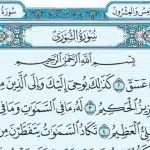 وَالعِشْرُونَ سُورَةُ
سُورَةُ الشُّورَىٰ
بِسْمِ ٱللَّهِ ٱلرَّحْمَٰنِ ٱلرَّحِيمِ
عٓسٓقٓ ٢ كَذَٰلِكَ يُوحِىٓ إِلَيْكَ وَإِلَى ٱلَّذِينَ مِن
ٱلْحَكِيمُ ٣ لَهُۥ مَا فِى ٱلسَّمَٰوَٰتِ وَمَا فِى
ٱلْعَظِيمُ ٤ تَكَادُ ٱلسَّمَٰوَٰتُ يَتَفَطَّرْنَ